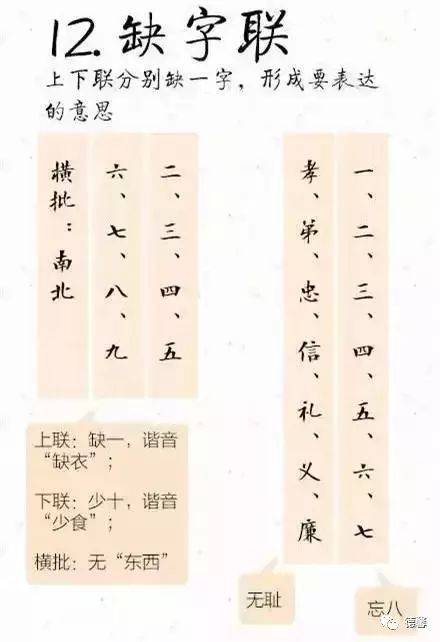 12.缺字联
上下联分别缺一字，形成要表达
的意思
二、三、四、五
六、七、八、九
横批：南北
上联：缺一，谐音
“缺衣”；
下联：少十，谐音
“少食”；
横批：无“东西”
一、二、三、四、五、六、七
孝、弟、忠、信、礼、义、廉
忘八
无耻
德馨